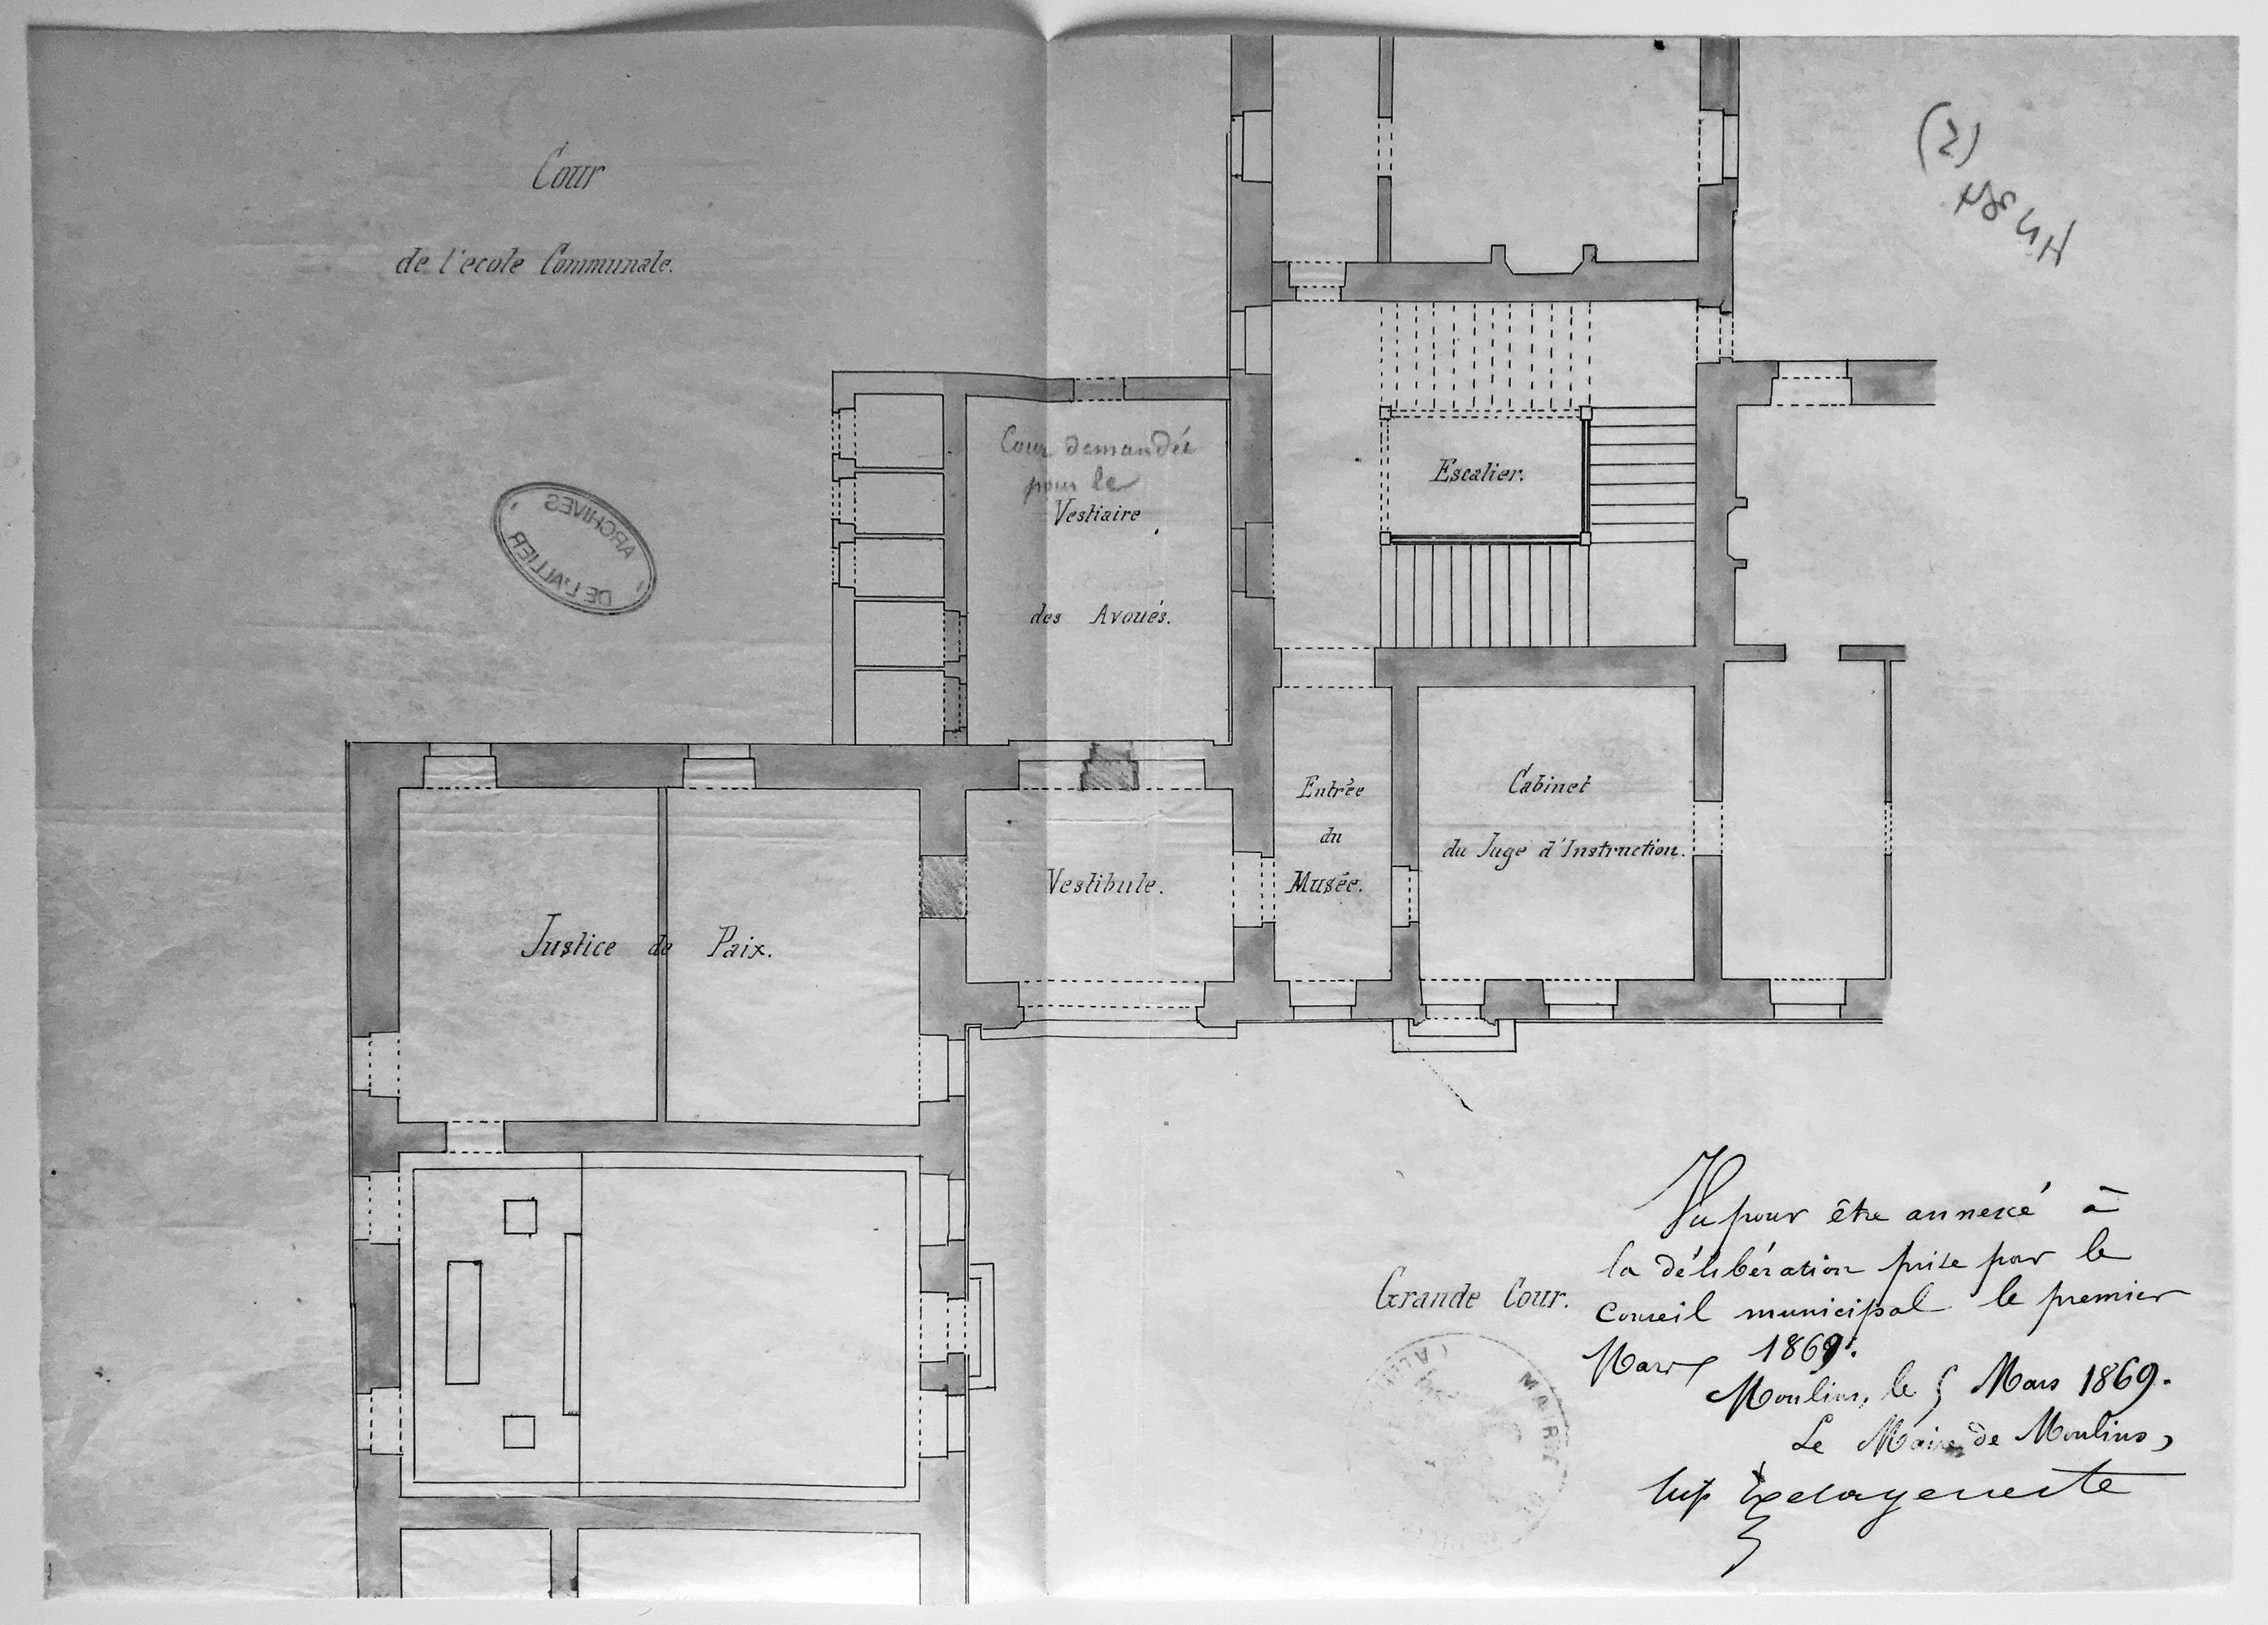 Cour
de l'ecole Communale.
Cour demandée
pour le
Vestiaire
des Avoués.
Escalier.
ARCHIVES
DE L'ALLIER
Entrée
du
Musée.
Cabinet
du Juge d'Instruction.
Vestibule.
Justice de Paix.
Grande Cour.
Vu pour être annexé à
la délibération prise par le
Conseil municipal le premier
Mars 1869.
Moulins, le 5 Mars 1869.
Le Maire de Moulins,
MAIRIE DE
(2)